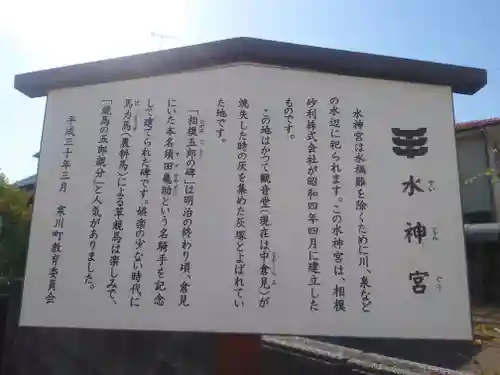 水神宮
すいじんぐう
水神宮は水禍難を除くために川、泉など
の水辺に祀られます。この水神宮は、相模
砂利株式会社が昭和四年四月に建立した
ものです。
この地はかつて観音堂(現在は中倉見)が
焼失した時の灰を集めた灰塚とよばれてい
た地です。
「相模五郎の碑」は明治の終わり頃、倉見
にいた本名須田亀助という名騎手を記念
して建てられた碑です。娯楽の少ない時代に
馬力馬(農耕馬)による草競馬は楽しみで、
「競馬の五郎親分」と人気がありました。
平成三十年三月 寒川町教育委員会